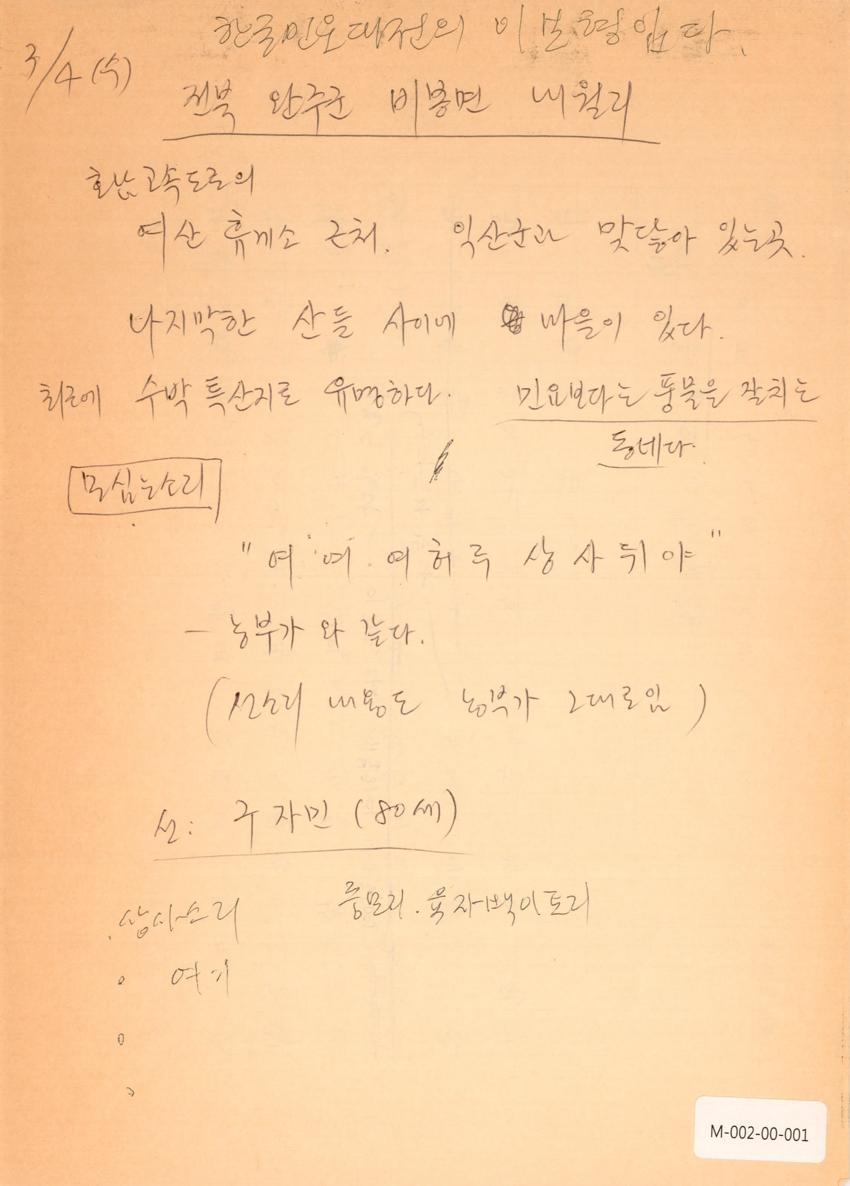 한국민요대전의 이보형입니다.
3/4(수)
전북 완주군 비봉면 내월리
호남고속도로의
여산 휴게소 근처. 익산군과 맞닿아 있는곳.
나지막한 산들 사이에 마을이 있다.
최근에 수박 특산지로 유명하다. 민요보다는 풍물을 잘치는
동네다.
모심는소리
"여 여 . 여허루 상사뒤야"
- 농부가와 같다.
(선소리 내용도 농부가 그대로임)
선: 구자민 (80세)
상사소리 중모리. 육자백이토리
여기
M-002-00-001